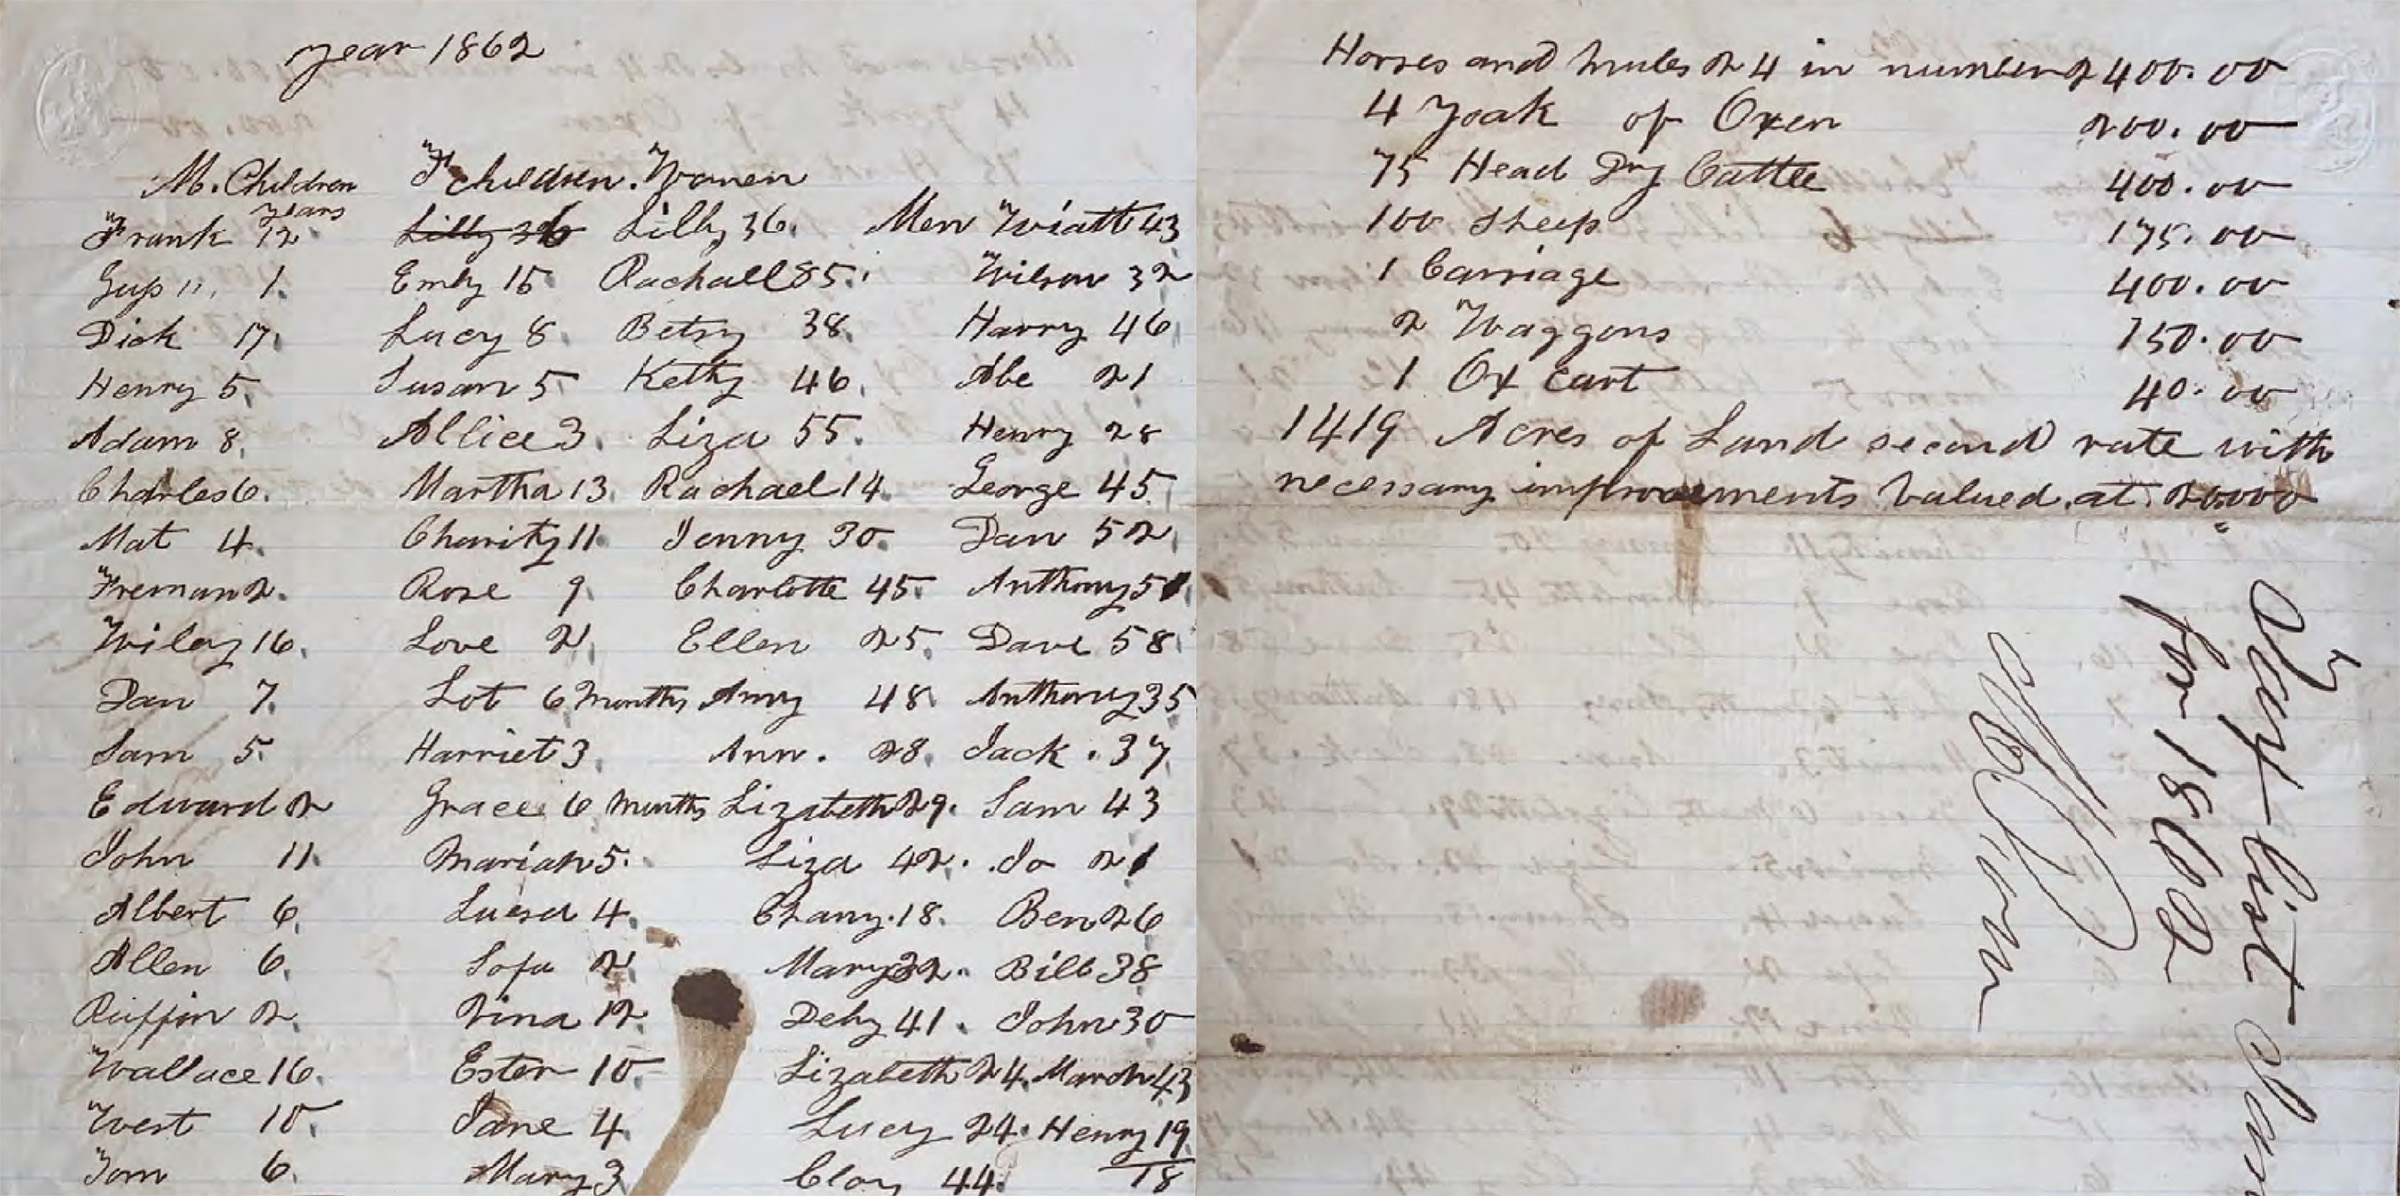 year 1862
M. Children F children. Women
years
Frank 12 Lilly 36 Lilly 36. Men Wiatt 43
Gus 11, 1. Emly 15 Rachall 85. Wilson 32
Dick 17. Lucy 8. Betsy 38. Harry 46
Henry 5. Susan 5 Ketty 46. Abe 21
Adam 8. Allice 3. Liza 55. Henry 28
Charles 6. Martha 13. Rachael 14. George 45
Mat 4. Charity 11. Jenny 30. Dan 52
Freman 2. Rose 9. Charlotte 45. Anthony 51
Wiley 16. Love 2. Ellen 25. Dave 58
Dan 7. Lot 6 months Amy 48. Anthony 35
Sam 5. Harriet 3. Ann. 28. Jack. 37
Edward 2 Grace 6 months Lizabeth 29. Sam 43
John 11. Mariah 5. Liza 42. Jo 21
Albert 6. Luesa 4. Chany. 18. Ben 26
Allen 6. Sofa 2. Mary 32. Bill 38
Ruffin 2. Zina 12. Deby 41. John 30
Wallace 16. Ester 10 Lizabeth 24. March 43
West 10. Jane 4. Lucy 24. Henry 19
Tom 6. Mary 3 Cloy 44. 18
Horses and mules 24 in number 2400.00
4 Yoak of Oxen 200.00
75 Head Dry Cattle 400.00
100 Sheep 175.00
1 Carriage 400.00
2 Waggons 150.00
1 Ox Cart 40.00
1419 Acres of Land second rate with
necessary improvements valued. at. 20000
Tax list
for 1862